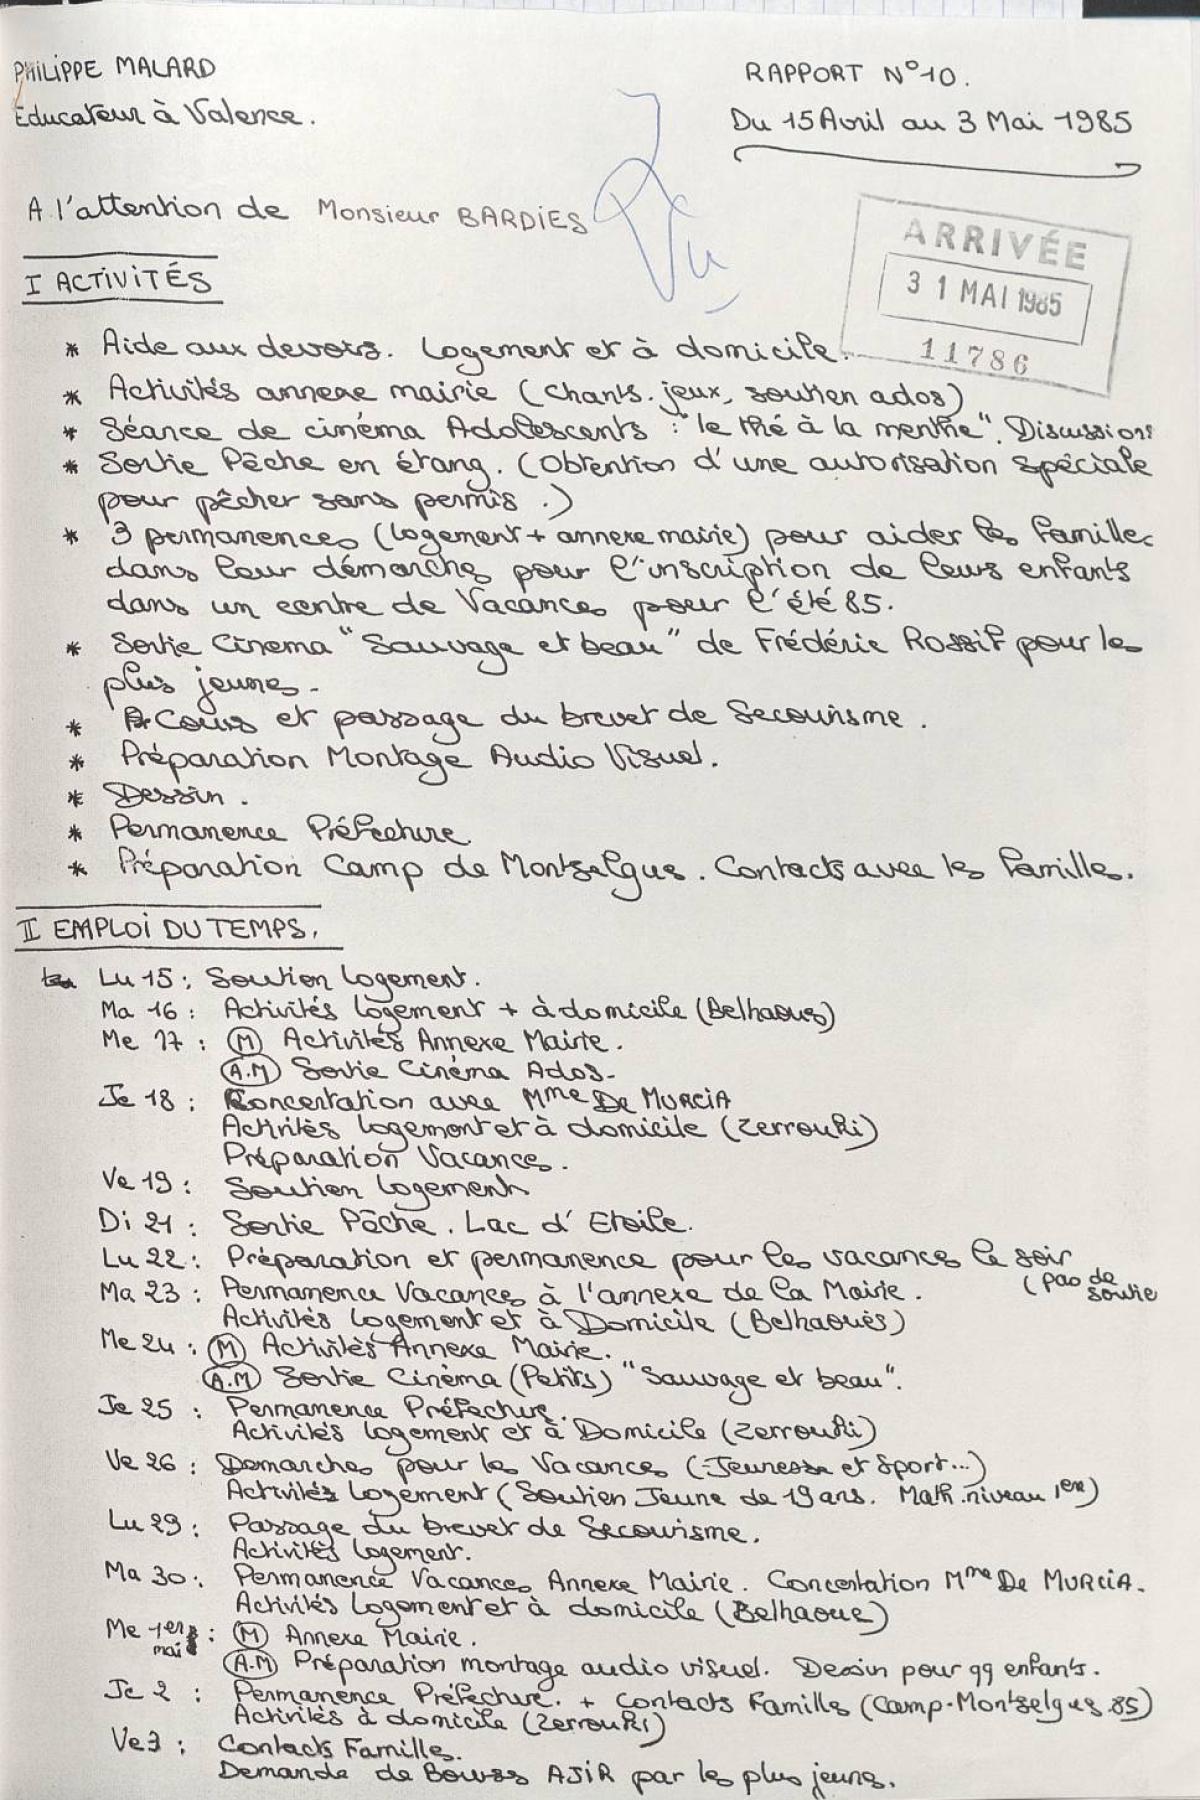 PHILIPPE MALARD
Educateur à Valence.
RAPPORT N°10.
Du 15 Avril au 3 Mai 1985
A l'attention de Monsieur BARDIES
Vu
ARRIVÉE
31 MAI 1985
11786
I ACTIVITÉS
* Aide aux devoirs. Logement et à domicile.
* Activités annexe mairie (chants. jeux, soutien ados)
* Séance de cinéma Adolescents : "le thé à la menthe". Discussions
* Sortie Pêche en étang. (Obtention d'une autorisation spéciale
pour pêcher sans permis.)
* 3 permanences (logement + annexe mairie) pour aider les familles
dans leur démarches pour l'inscription de leurs enfants
dans un centre de Vacances pour l'été 85.
* Sortie Cinema "Sauvage et beau" de Frédéric Rossif pour les
plus jeunes.
* Cours et passage du brevet de Secourisme.
* Préparation Montage Audio Visuel.
* Dessin.
* Permanence Préfecture.
* Préparation Camp de Montselgues. Contacts avec les familles.
II EMPLOI DU TEMPS.
Lu 15 : Soutien logement.
Ma 16 : Activités logement + à domicile (Belhaoues)
Me 17 : (M) Activités Annexe Mairie.
(A.M) Sortie Cinéma Ados.
Je 18 : Concertation avec Mme De MURCIA
Activités logement et à domicile (Zerrouki)
Préparation Vacances.
Ve 19 : Soutien logement
Di 21 : Sortie Pêche. Lac d'Etoile.
Lu 22 : Préparation et permanence pour les vacances le soir
(pas de soutie
Ma 23 : Permanence Vacances à l'annexe de la Mairie.
Activités logement et à Domicile (Belhaouès)
Me 24 : (M) Activités Annexe Mairie.
(A.M) Sortie Cinéma (Petits) "Sauvage et beau".
Je 25 : Permanence Préfecture.
Activités logement et à Domicile (Zerrouki)
Ve 26 : Demarches pour les Vacances (Jeunesse et Sport...)
Activités logement (Soutien Jeune de 19 ans. Math. niveau 1ere)
Lu 29 : Passage du brevet de Secourisme.
Activités logement.
Ma 30 : Permanence Vacances Annexe Mairie. Concertation Mme De MURCIA.
Activités logement et à domicile (Belhaoue)
Me 1er mai : (M) Annexe Mairie.
(A.M) Préparation montage audio visuel. Dessin pour qq enfants.
Je 2 : Permanence Préfecture. + Contacts Familles (Camp-Montselgues.85)
Activités à domicile (Zerrouki)
Ve 3 : Contacts Familles.
Demande de Bourses AJIR par les plus jeunes.